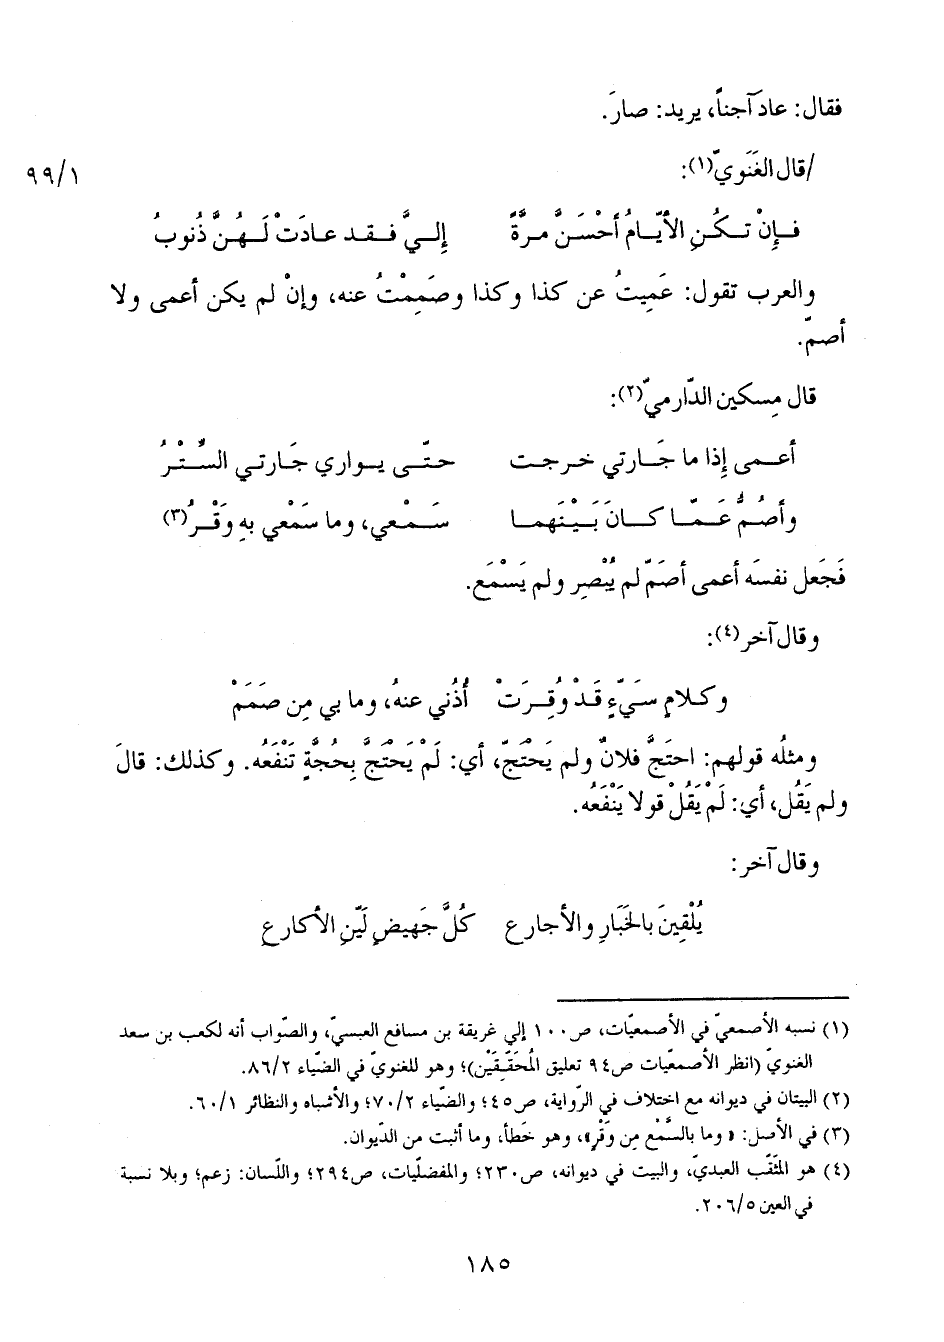 فقال: عادَ آجناً، يريد: صارَ.
/قال الغَنَويّ(١): ٩٩/١
فـإِنْ تـكُـنِ الأيّـامُ أحْسَـنَّ مـرَّةً إلـيَّ فـقـد عـادَتْ لَـهُـنَّ ذُنوبُ
والعرب تقول: عَمِيتُ عن كذا وكذا وصَمِمْتُ عنه، وإنْ لم يكن أعمى ولا
أصمّ.
قال مِسكين الدّارميّ(٢):
أعـمـى إذا ما جَـارتي خـرجـت حـتّـى يـواري جَـارتي السِّـتْـرُ
وأصُـمُّ عَـمّـا كـانَ بَـيْـنَهمـا سَـمْـعي، وما سَمْعي بهِ وَقْـرُ(٣)
فَجَعل نفسَه أعمى أصَمّ لم يُبْصِر ولم يَسْمَع.
وقال آخر(٤):
وكـلامٍ سَـيّـءٍ قَـدْ وُقِـرَتْ أُذُني عنهُ، وما بي مِن صَمَمْ
ومثلُه قولهم: احتَجَّ فلانٌ ولم يَحْتَجّ، أي: لَمْ يَحْتَجَّ بِحُجَّةٍ تَنْفَعُه. وكذلك: قالَ
ولم يَقُل، أي: لَمْ يَقُلْ قولا يَنْفَعُه.
وقال آخر:
يُلْقِينَ بالخَبَارِ والأجارعِ كُلَّ جَهيضٍ لَيّنِ الأكارعِ
(١) نسبه الأصمعيّ في الأصمعيّات، ص١٠٠ إلي غريقة بن مسافع العبسيّ، والصّواب أنه لكعب بن سعد
الغنويّ (انظر الأصمعيات ص٩٤ تعليق المُحَقّقَيْن)؛ وهو للغنويّ في الضّياء ٨٦/٢.
(٢) البيتان في ديوانه مع اختلاف في الرّواية، ص٤٥؛ والضّياء ٧٠/٢؛ والأشباه والنظائر ٦٠/١.
(٣) في الأصل: «وما بالسَّمْع مِن وَقْرِ»، وهو خَطأ، وما أثبت من الدّيوان.
(٤) هو المثَقّب العبديّ، والبيت في ديوانه، ص٢٣٠؛ والمفضليّات، ص٢٩٤؛ واللّسان: زعم؛ وبلا نسبة
في العين ٢٠٦/٥.
١٨٥